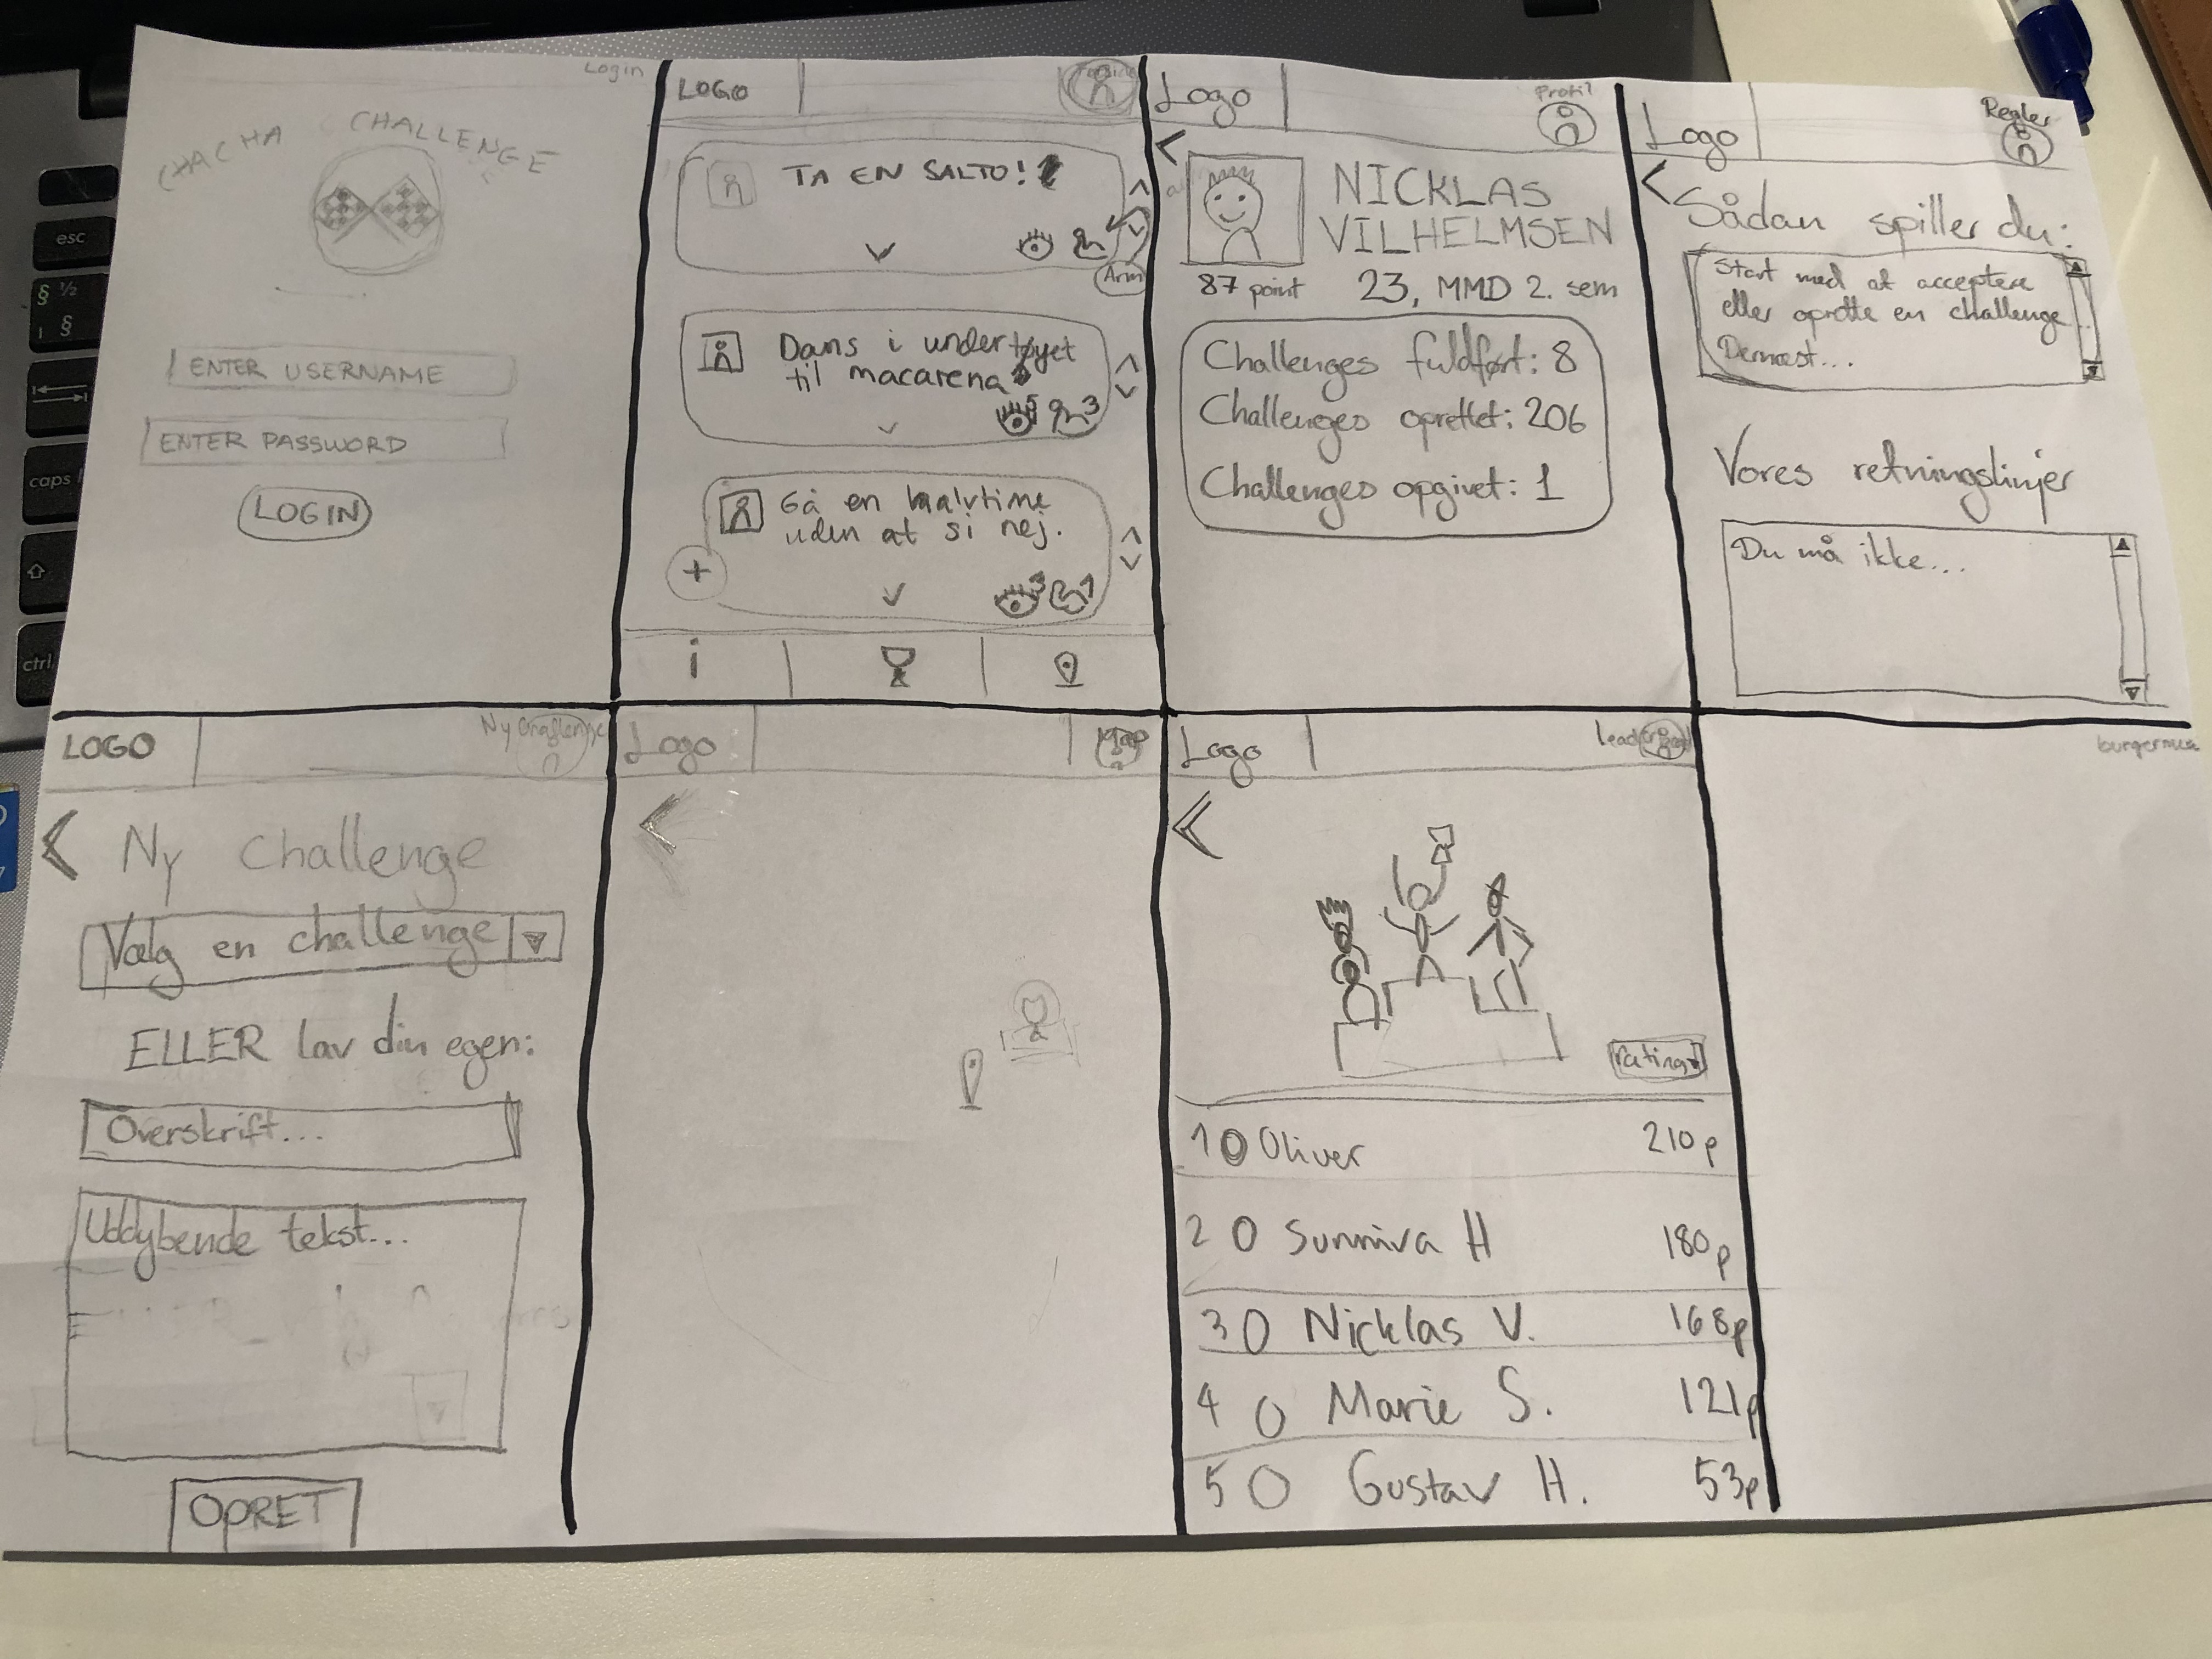 Login
CHACHA CHALLENGE
ENTER USERNAME
ENTER PASSWORD
LOGIN
LOGO
TA EN SALTO!
Arm
Dans i undertøyet
til macarena
5 3
Gå en halvtime
uden at si nej.
3 1
+
i
Logo
Profil
NICKLAS
VILHELMSEN
87 point
23, MMD 2. sem
Challenges fuldført: 8
Challenges oprettet: 206
Challenges opgivet: 1
Logo
Regler
Sådan spiller du:
Start med at acceptere
eller oprette en challenge
Dernæst...
Vores retningslinjer
Du må ikke...
LOGO
Ny Challenge
Ny Challenge
Vælg en challenge
ELLER lav din egen:
Overskrift...
Uddybende tekst...
OPRET
Logo
Map
Logo
rating
1 Oliver 210p
2 Sunniva H 180p
3 Nicklas V. 168p
4 Marie S. 121p
5 Gustav H. 53p
esc
§ ½
§
caps
ctrl